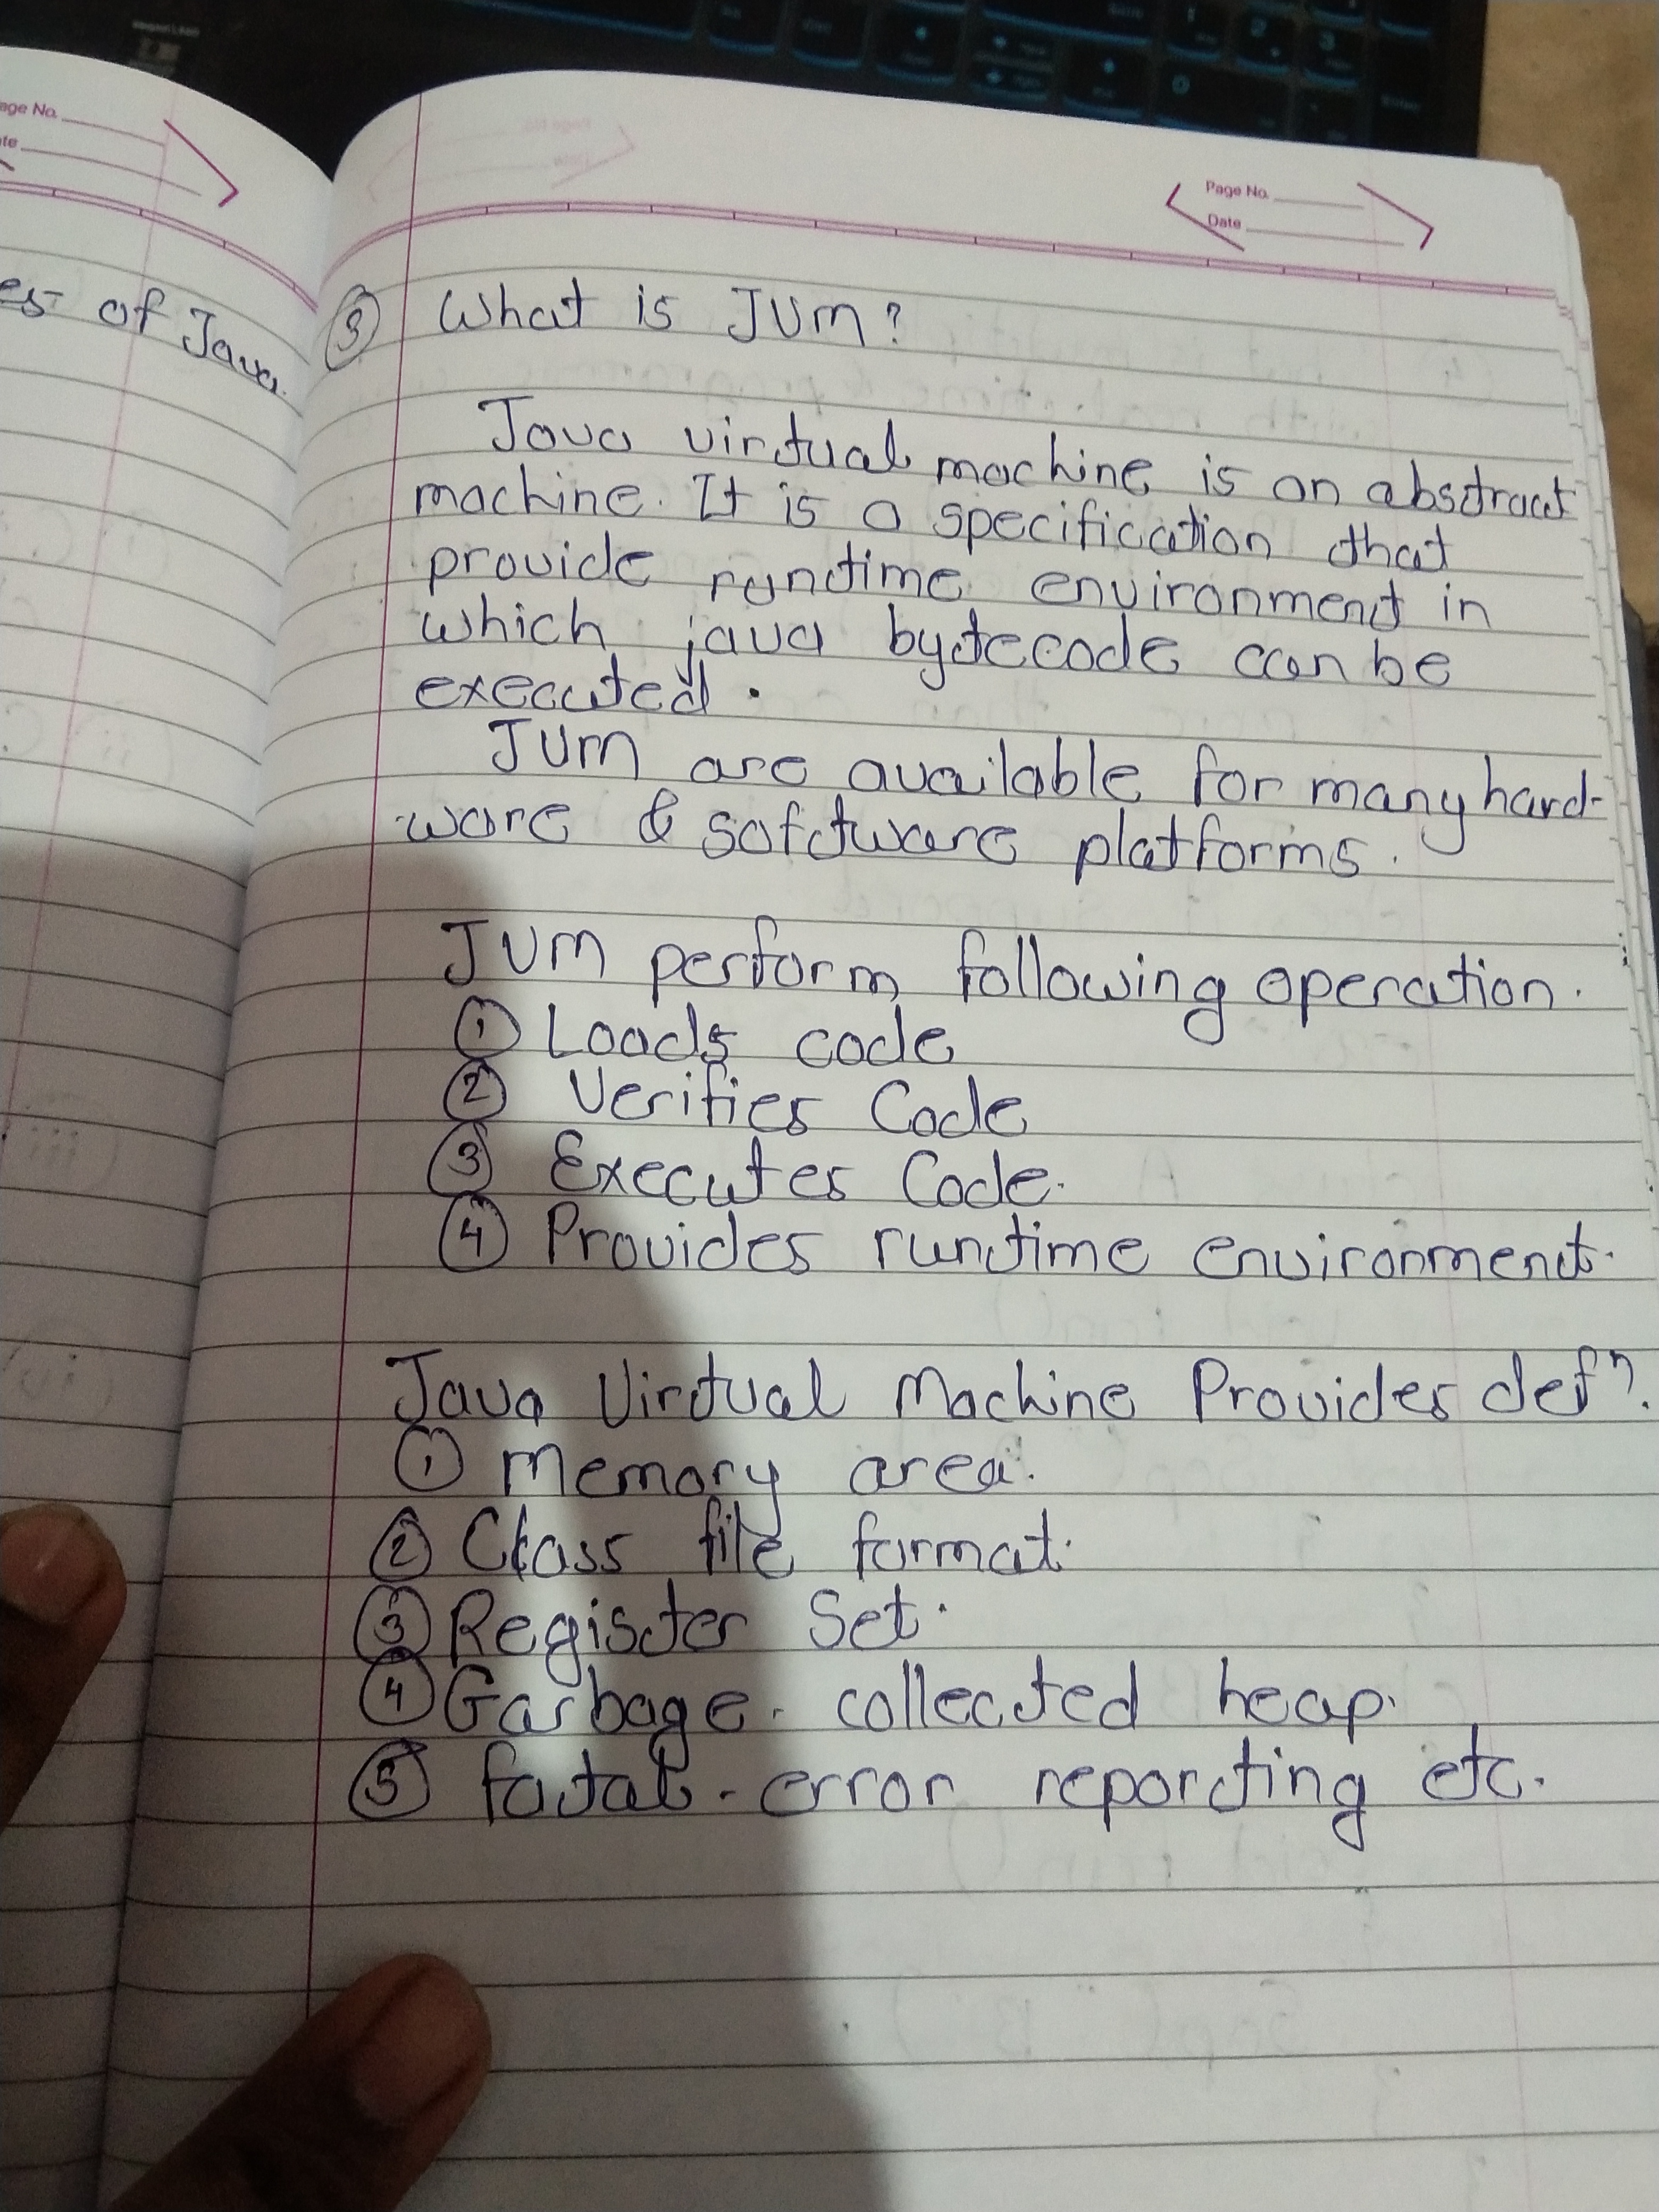 age No.
te
es of Java.
Page No.
Date
③ What is JVM?
Java virtual machine is an abstract
machine. It is a specification that
provide runtime environment in
which java bytecode can be
executed.
JVM are available for many hard-
ware & software platforms.
JVM perform following operation.
① Loads code
② Verifies Code
③ Executes Code.
④ Provides runtime environment.
Java Virtual Machine Provides defⁿ.
① Memory area.
② Class file format.
③ Register Set.
④ Garbage - collected heap.
⑤ fatal - error reporting etc.